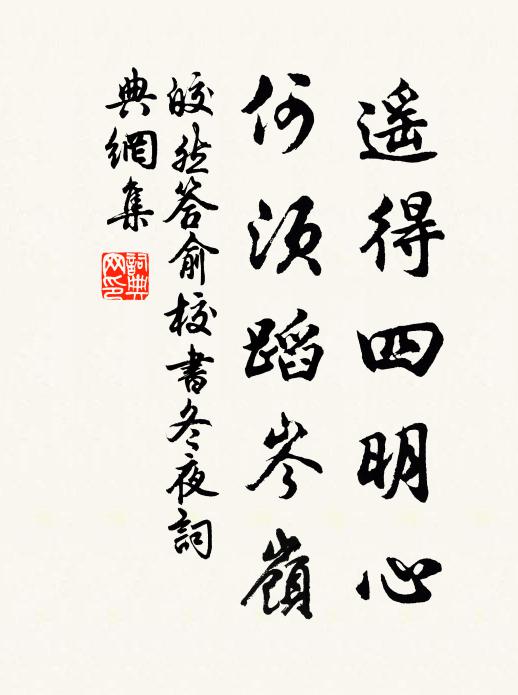 遥得四明心
何須蹈岑嶺
皎然答俞校書冬夜詞
典網集
詞典網印